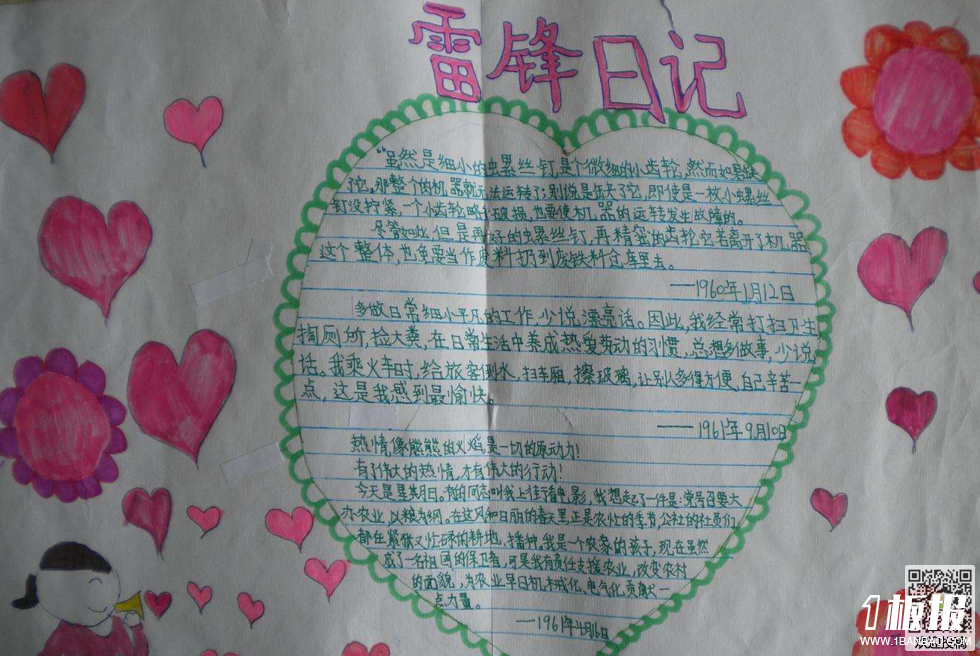 雷锋日记
“虽然是细小的虫累丝钉,是个微细的小齿轮,然而如果缺
了它,那整个的机器就无法运转了;别说是缺了它,即使是一枚小螺丝
钉没拧紧,一个小齿轮略有破损,也要使机器的运转发生故障的。
尽管如此,但是再好的虫累丝钉,再精密的齿轮它若离开了机器
这个整体,也免要当作废料扔到废铁料仓库里去。
——1960年1月12日
多做日常细小平凡的工作,少说漂亮话。因此,我经常打扫卫生
掏厕所,捡大粪,在日常生活中养成热爱劳动的习惯,总想多做事,少说
话。我乘火车时,给旅客倒水,扫车厢,擦玻璃,让别人多得方便,自己辛苦一
点,这是我感到最愉快。
——1961年9月10日
热情像熊熊的火焰,是一切的原动力!
有了伟大的热情,才有伟大的行动!
今天是星期日。有的同志叫我上街看电影,我想起了一件是:党号召要大
办农业,以粮为纲。在这风和日丽的春天里,正是农忙的季节,公社的社员们
都在紧张又忙碌的耕地,播种。我是个农家的孩子,现在虽然
成了一名祖国的保卫者,可是我有责任支援农业,改变农村
的面貌,为农业早日机械化、电气化,贡献一
点力量。
——1961年4月16日
1板报
WWW.1BANBAO.COM
欢迎投稿